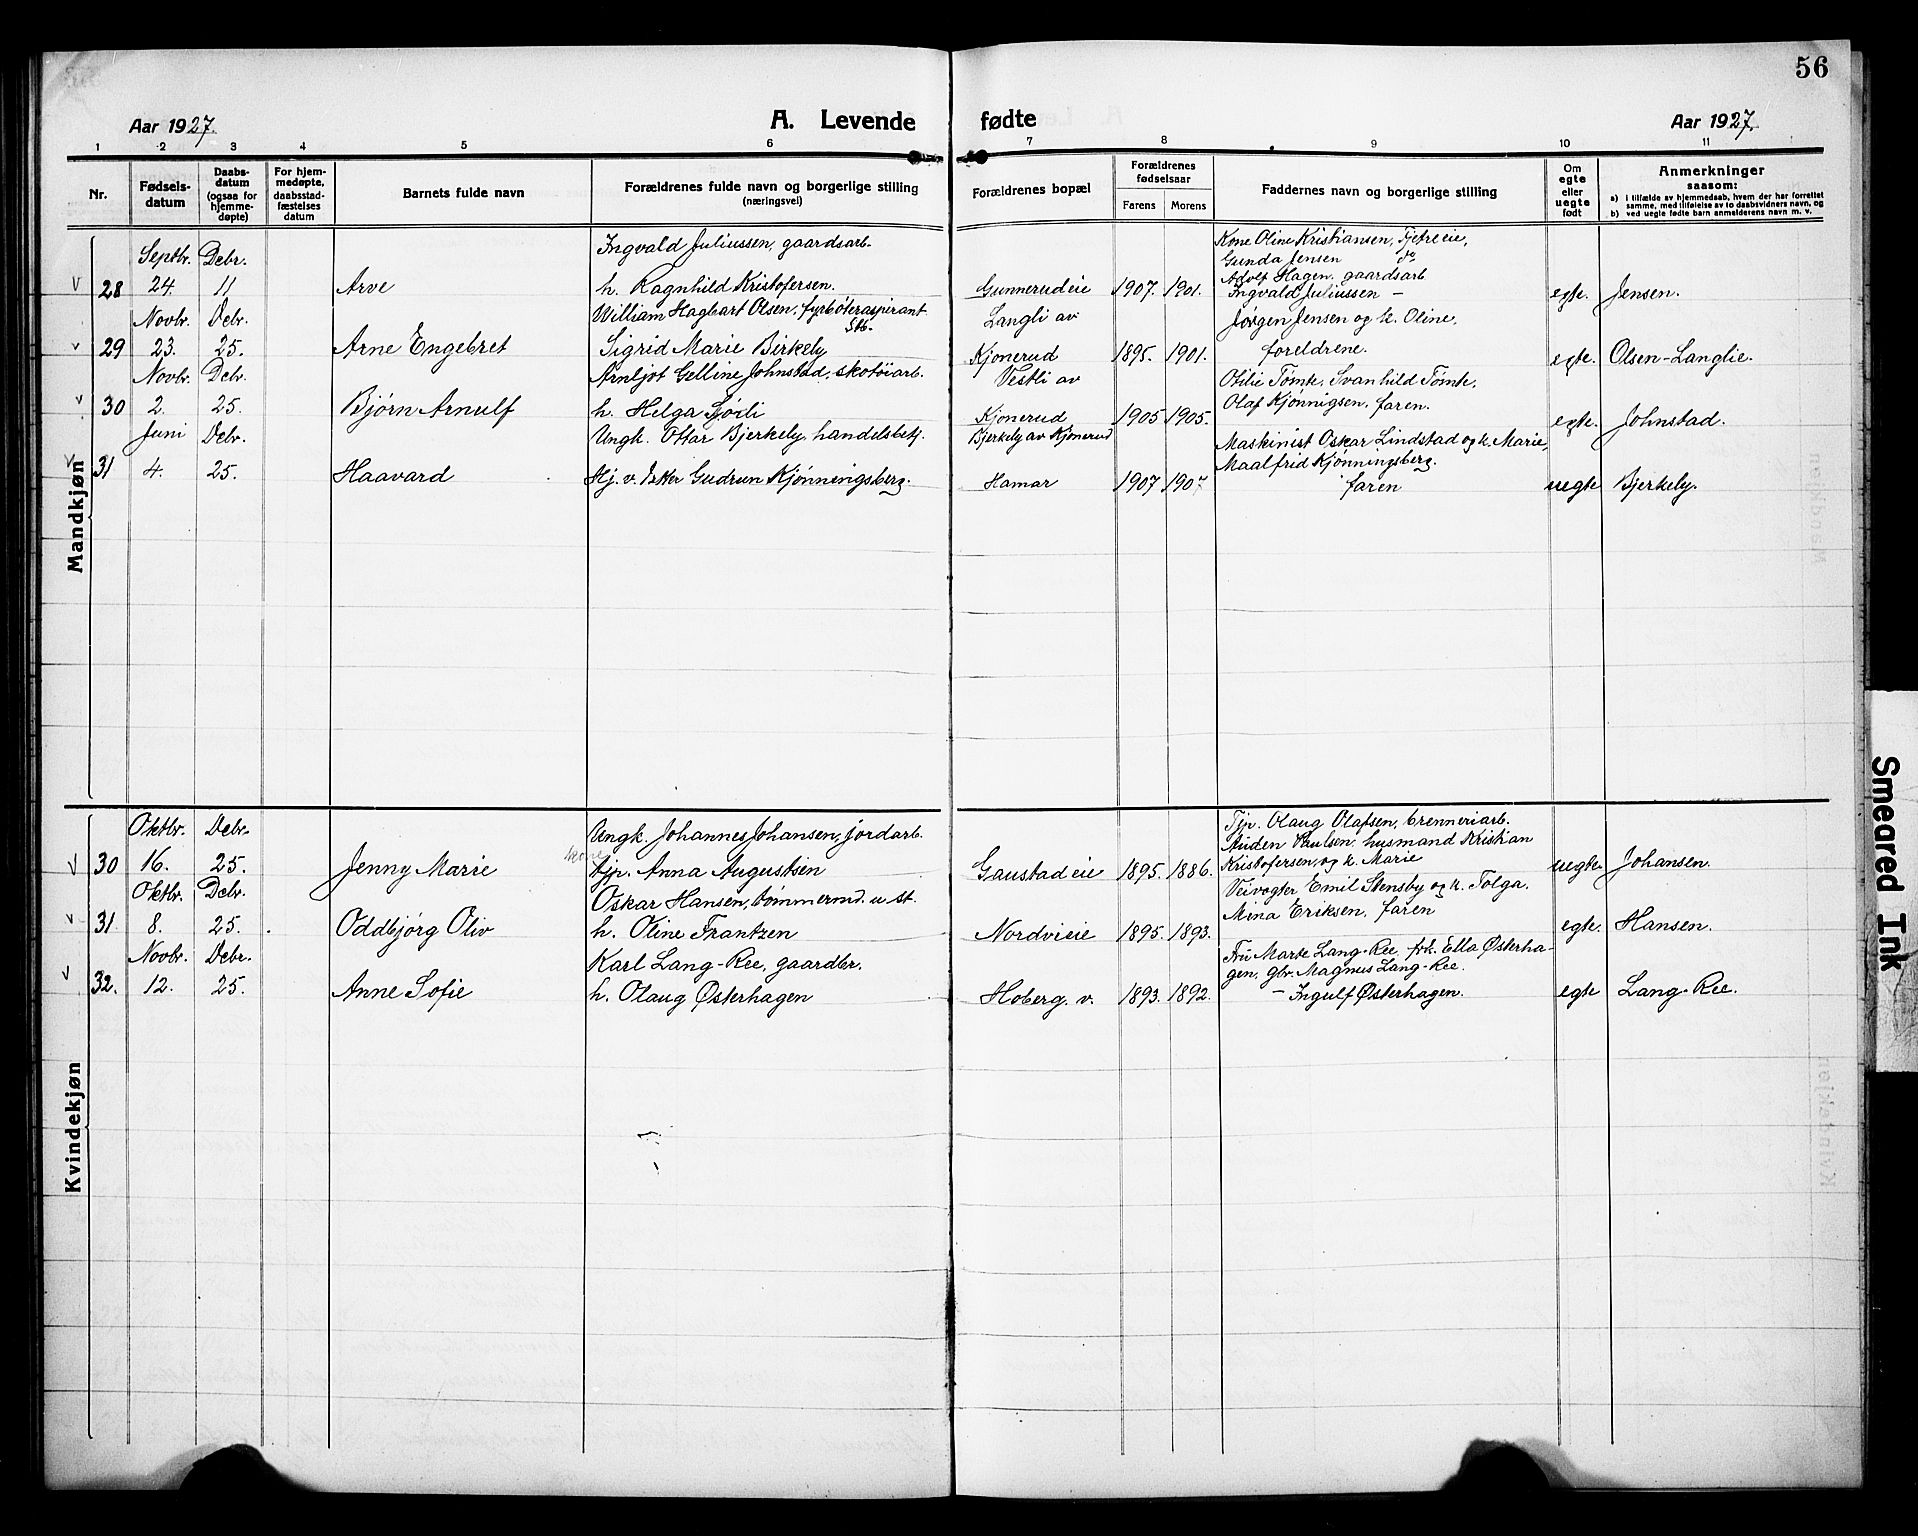 56
Aar 1927.
A. Levende fødte
Aar 1927.
1 2 3 4 5 6 7 8 9 10 11
Nr.
Fødsels-
datum
Daabs-
datum
(ogsaa for
hjemme-
døpte)
For hjem-
medøpte,
daabsstad-
fæstelses
datum
Barnets fulde navn
Forældrenes fulde navn og borgerlige stilling
(næringsvei)
Forældrenes bopæl
Forældrenes
fødselsaar
Farens Morens
Faddernes navn og borgerlige stilling
Om
egte
eller
uegte
født
Anmerkninger
saasom:
a) i tilfælde av hjemmedaab, hvem der har forrettet
samme, med tilføielse av to daabsvidners navn, og
b) ved uegte fødte barn anmelderens navn m. v.
Mandkjøn
Septbr. Debr. Ingvald Juliussen, gaardsarb. Kone Oline Kristiansen, Tjetreeie,
Gunda Jensen do
Adolf Hagen, gaardsarb
28 24. 11 Arve h. Ragnhild Kristofersen. Gunnerudeie 1907. 1901. Ingvald Juliussen – egte. Jensen.
Novbr. Debr. William Hagbart Olsen, fyrbøteraspirant Langli av Jørgen Jensen og k. Oline,
Stb.
29 23. 25. Arne Engebret Sigrid Marie Birkely Kjonerud 1895. 1901. foreldrene. egte. Olsen-Langlie.
Novbr. Debr. Arnljot Gelline Johnstad, skotøiarb. Vestli av Otilie Tømte, Svanhild Tømte,
30 2. 25. Bjørn Arnulf h. Helga Sjøli Kjonerud 1905 1905. Olaf Kjønnigsen, faren. egte. Johnstad.
Juni Debr. Ungk. Ottar Bjerkely, handelsbetj. Bjerkely av Kjonerud Maskinist Oskar Lindstad og k. Marie,
Maalfrid Kjønningsberg.
31 4. 25. Haavard Hj. v. Dtter Gudrun Kjønningsberg. Hamar 1907 1907 faren uegte Bjerkely.
Kvindekjøn
Oktbr. Debr. Ungk. Johannes Johansen, jordarb. Tjp. Olaug Olafsen, brenneriarb.
Auden Paulsen, husmand Kristian
30 16. 25. Jenny Marie tjp. Anna Augustsen Gaustadeie 1895. 1886. Kristofersen, og k. Marie uegte Johansen.
Oktbr. Debr. Oskar Hansen, tømmermd. u st. Veivogter Emil Stensby og k. Tolga.
31 8. 25. Oddbjørg Oliv h. Oline Frantzen Nordvieie 1895. 1893. Mina Eriksen, faren egte. Hansen.
Novbr. Debr. Karl Lang-Ree, gaardbr. Fru Marte Lang-Ree, frk. Ella Østerha-
gen, gbr. Magnus Lang-Ree.
32. 12. 25. Anne Sofie h. Olaug Østerhagen Hoberg. v. 1893. 1892. – Ingulf Østerhagen. egte Lang-Ree.
Smeared Ink